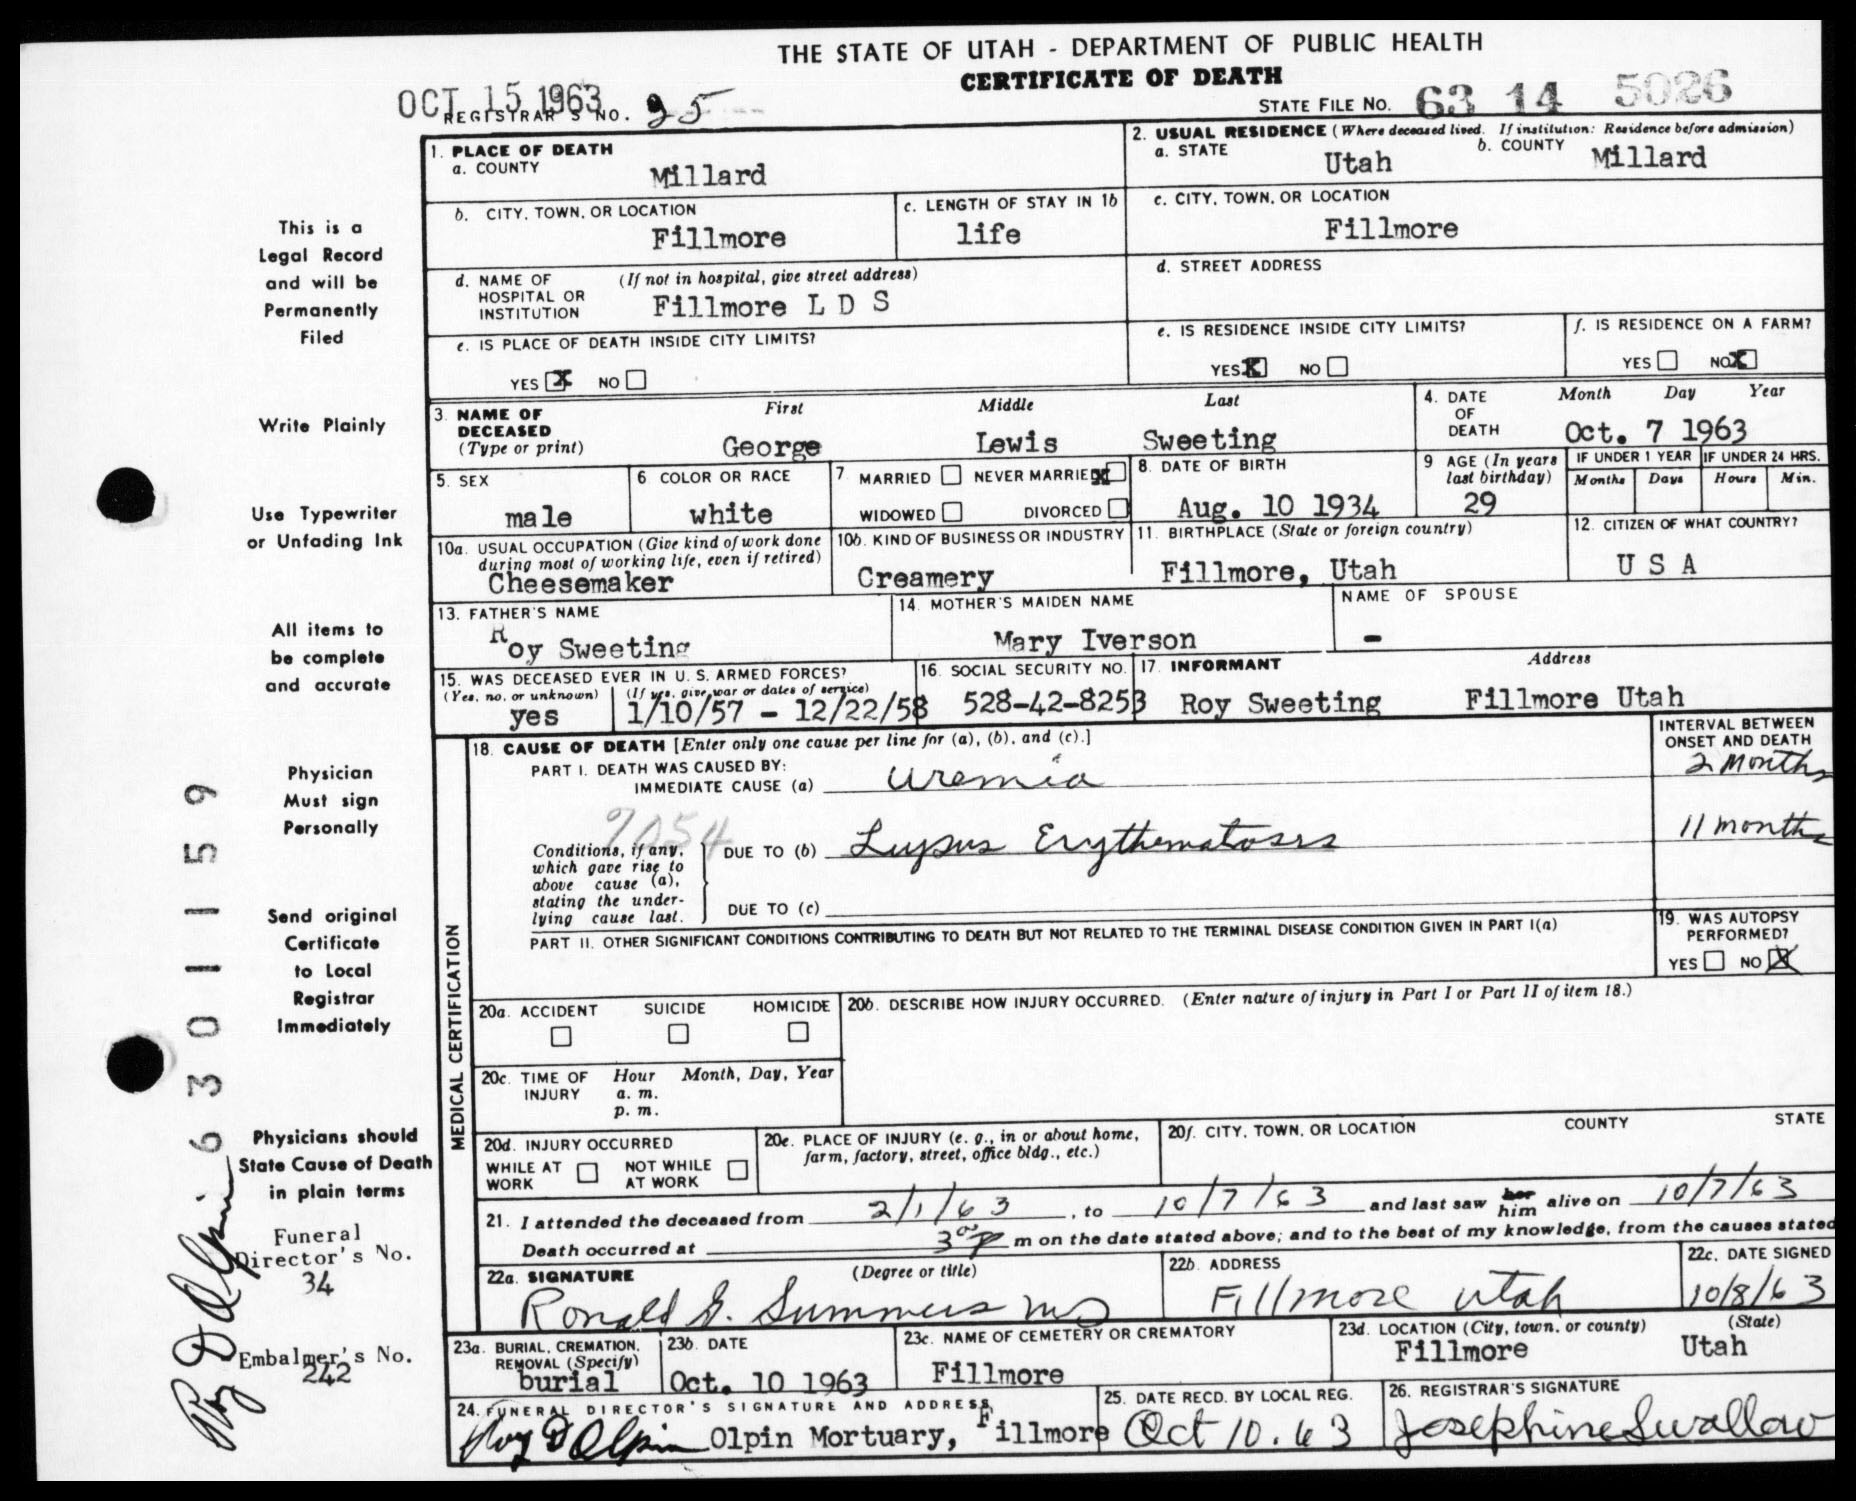 THE STATE OF UTAH - DEPARTMENT OF PUBLIC HEALTH
CERTIFICATE OF DEATH
OCT 15 1963
REGISTRAR'S NO. 25
STATE FILE NO. 63 14 5026
1. PLACE OF DEATH
a. COUNTY Millard
2. USUAL RESIDENCE (Where deceased lived. If institution: Residence before admission)
a. STATE Utah b. COUNTY Millard
b. CITY, TOWN, OR LOCATION Fillmore
c. LENGTH OF STAY IN 1b life
c. CITY, TOWN, OR LOCATION Fillmore
d. NAME OF HOSPITAL OR INSTITUTION (If not in hospital, give street address) Fillmore L D S
d. STREET ADDRESS
e. IS PLACE OF DEATH INSIDE CITY LIMITS?
YES X NO
e. IS RESIDENCE INSIDE CITY LIMITS?
YES X NO
f. IS RESIDENCE ON A FARM?
YES NO X
3. NAME OF DECEASED (Type or print) First Middle Last
George Lewis Sweeting
4. DATE OF DEATH Month Day Year
Oct. 7 1963
5. SEX male
6 COLOR OR RACE white
7 MARRIED NEVER MARRIED X
WIDOWED DIVORCED
8. DATE OF BIRTH Aug. 10 1934
9 AGE (In years last birthday) 29
IF UNDER 1 YEAR Months Days
IF UNDER 24 HRS. Hours Min.
10a. USUAL OCCUPATION (Give kind of work done during most of working life, even if retired) Cheesemaker
10b. KIND OF BUSINESS OR INDUSTRY Creamery
11. BIRTHPLACE (State or foreign country) Fillmore, Utah
12. CITIZEN OF WHAT COUNTRY? U S A
13. FATHER'S NAME Roy Sweeting
14. MOTHER'S MAIDEN NAME Mary Iverson
NAME OF SPOUSE -
15. WAS DECEASED EVER IN U. S. ARMED FORCES?
(Yes, no, or unknown) yes (If yes, give war or dates of service) 1/10/57 - 12/22/58
16. SOCIAL SECURITY NO. 528-42-8253
17. INFORMANT Address
Roy Sweeting Fillmore Utah
MEDICAL CERTIFICATION
18. CAUSE OF DEATH [Enter only one cause per line for (a), (b), and (c).]
INTERVAL BETWEEN ONSET AND DEATH
PART I. DEATH WAS CAUSED BY:
IMMEDIATE CAUSE (a) Uremia 2 Months
Conditions, if any, which gave rise to above cause (a), stating the underlying cause last.
DUE TO (b) Lupus Erythematosis 11 months
DUE TO (c)
PART II. OTHER SIGNIFICANT CONDITIONS CONTRIBUTING TO DEATH BUT NOT RELATED TO THE TERMINAL DISEASE CONDITION GIVEN IN PART I(a)
19. WAS AUTOPSY PERFORMED?
YES NO X
20a. ACCIDENT SUICIDE HOMICIDE
20b. DESCRIBE HOW INJURY OCCURRED. (Enter nature of injury in Part I or Part II of item 18.)
20c. TIME OF INJURY Hour Month, Day, Year
a. m.
p. m.
20d. INJURY OCCURRED
WHILE AT WORK NOT WHILE AT WORK
20e. PLACE OF INJURY (e. g., in or about home, farm, factory, street, office bldg., etc.)
20f. CITY, TOWN, OR LOCATION COUNTY STATE
21. I attended the deceased from 2/1/63, to 10/7/63 and last saw her him alive on 10/7/63
Death occurred at 3 00 p m on the date stated above; and to the best of my knowledge, from the causes stated
22a. SIGNATURE (Degree or title)
Ronald G. Summers MD
22b. ADDRESS Fillmore Utah
22c. DATE SIGNED 10/8/63
23a. BURIAL, CREMATION, REMOVAL (Specify) burial
23b. DATE Oct. 10 1963
23c. NAME OF CEMETERY OR CREMATORY Fillmore
23d. LOCATION (City, town, or county) (State)
Fillmore Utah
24. FUNERAL DIRECTOR'S SIGNATURE AND ADDRESS
Roy D Olpin Olpin Mortuary, Fillmore
25. DATE RECD. BY LOCAL REG. Oct 10. 63
26. REGISTRAR'S SIGNATURE Josephine Swallow
This is a
Legal Record
and will be
Permanently
Filed
Write Plainly
Use Typewriter
or Unfading Ink
All items to
be complete
and accurate
Physician
Must sign
Personally
Send original
Certificate
to Local
Registrar
Immediately
Physicians should
State Cause of Death
in plain terms
Funeral
Director's No.
34
Embalmer's No.
242
Roy D Olpin
6301159